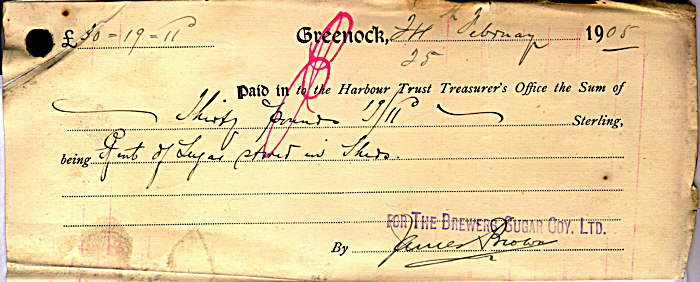 £ 30 = 19 = 11 Greenock, 24 February 1905
25
Paid in to the Harbour Trust Treasurer's Office the Sum of
Thirty Pounds 19/11 Sterling,
being Rent of Sugar stored in Sheds.
FOR THE BREWERS SUGAR COY. LTD.
By James Brown